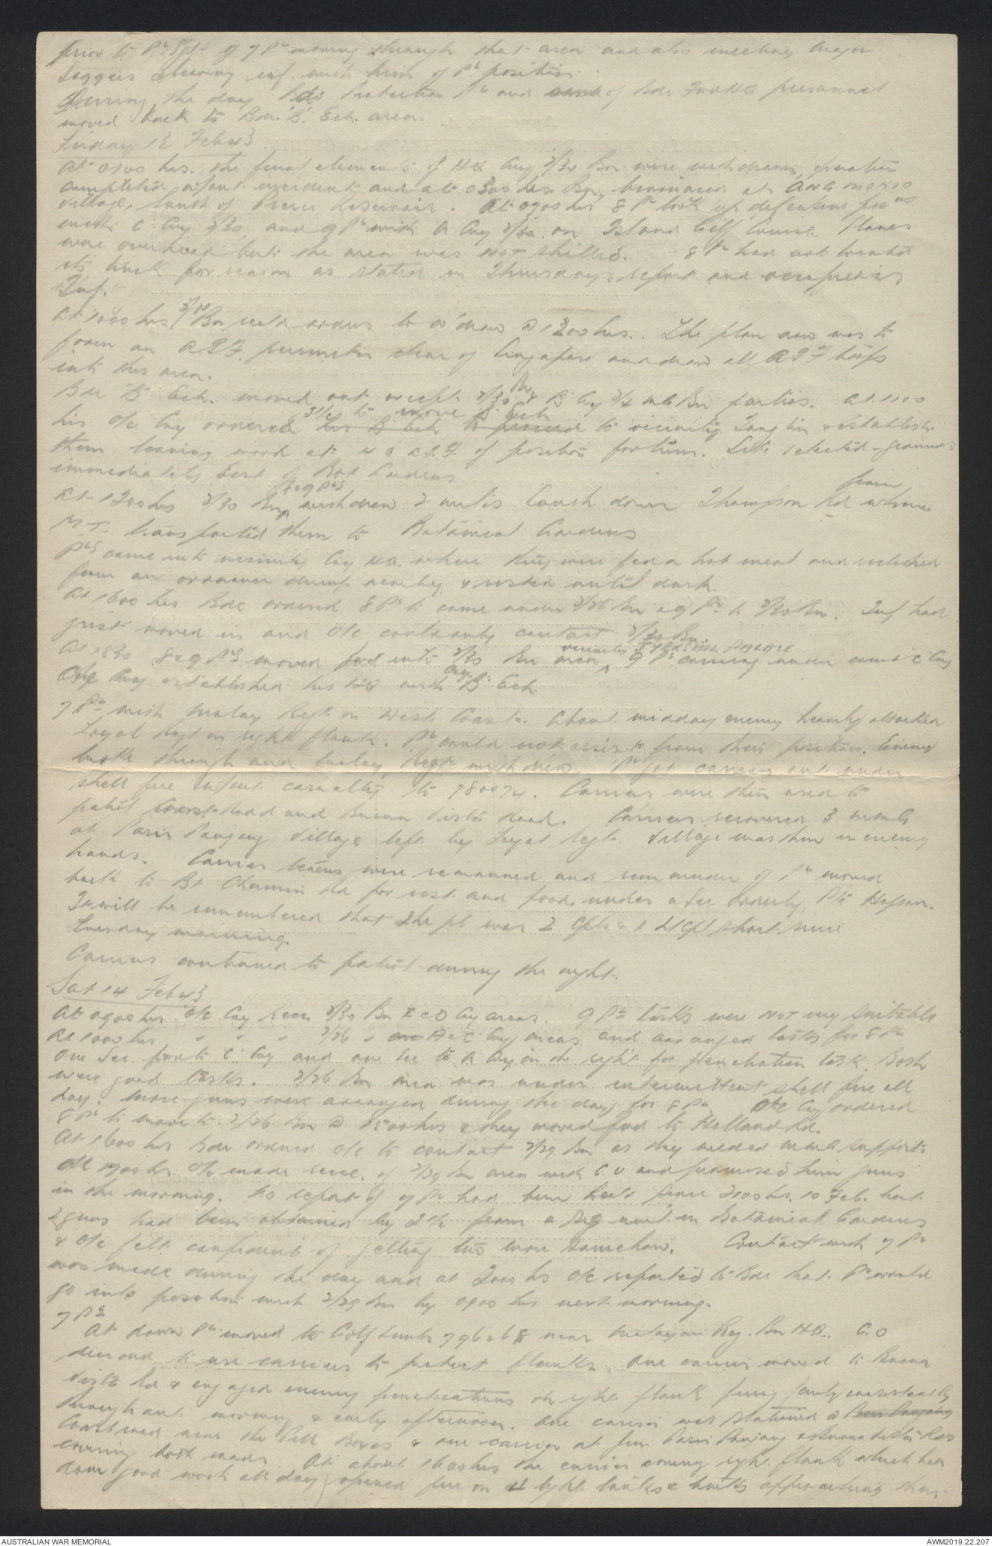 prior to Pl Sgt. of 7 Pl moving through that area and also meeting Major
Seggers showing inf. such firm of Pl position.
During the day Bde Protection Pl and some of Bde Functio personnel
moved back to Bde. 'B' Ech. area.
Friday 13 Feb 43
At 0100 hrs. the final elements of HQ Coy 2/30 Bn were withdrawn, operation
completed without incident and at 0300 hrs Bn bivouaced at ANG MO KIO
village, south of Peirce Reservoir. At 0900 hrs 8 Pl took up defensive posns
with C Coy 2/30, and 9 Pl with A Coy 2/30 on Island Golf Course. Planes
were overhead but the area was not shelled. 8 Pl had not located
its truck for reason as stated in Thursdays report and occupied as
Inf.
At 1000 hrs 2/30 Bn recd orders to w'draw @ 1300 hrs. The plan now was to
form an A.I.F. perimeter clear of Singapore and draw all A.I.F. troops
into this area.
Bde 'B' Ech. moved out except 2/30 Bn & B Coy 2/4 MG Bn parties. At 1100
hrs O/c Coy ordered 2 I/c to move B Ech to vicinity Tanglin & establish
them leaving word at H.Q A.I.F. of position for him. Site selected - grounds
immediately East of Bot Gardens
At 1300 hrs 2/30 Bn & 9 Pls withdrew 2 miles South down Thompson Rd from whence
M.T. transported them to Botanical Gardens
Pls came into vicinity Coy HQ. where they were fed a hot meal and reclothed
from an ordnance dump nearby & rested until dark.
At 1600 hrs Bde ordered 8 Pl to come under 2/26 Bn & 9 Pl to 2/30 Bn. Inf had
just moved in and O/c constantly contact 2/30 Bn.
At 1830 8 & 9 Pls moved fwd into 2/30 Bn area vicinity 9 Pl coming under comd 'C' Coy
O/c Coy established his HQ with Coy 'B' Ech
7 Pl with Malay Regt on West Coast. About midday enemy heavily attacked
Loyal Regt on right flank. Pl could not assist from their position. Enemy
broke through and Malay Regt withdrew. Pl got carriers out under
shell fire without casualty to 780074. Carriers were then used to
patrol Coast Road and Buona Vista Road. Carriers recovered 3 mmgs
at Pasir Panjang Village left by Loyal Regt. Village was then in enemy
hands. Carrier teams were remanned and remainder of Pl moved
back to Bt Chermin Rd for rest and food, under a Sec Orderly, Pte Hafson.
It will be remembered that the pl was 2 Cpls & 1 L/Cpl short since
Tuesday morning.
Carriers continued to patrol during the night.
Sat 14 Feb 43
At 0900 hrs O/c Coy recce 2/30 Bn B C D Coy areas. 9 Pl tasks were not very suitable
At 1000 hrs " " " 2/26 " A & C Coy areas and arranged tasks for 8 Pl
One Sec. fwd to 'C' Coy and one Sec to A Coy on the right for penetration task. Both
were good tasks. 2/26 Bn area was under intermittent shell fire all
day. More guns were arranged during the day for 8 Pl O/c Coy ordered
8 Pl to move to 2/26 Bn @ 1500 hrs & they moved fwd to Holland Rd.
At 1600 hrs Bde ordered O/c to contact 2/29 Bn as they needed m.m.g. support.
At 1700 hrs. O/c made recce. of 2/29 Bn area with C.O and promised him guns
in the morning. No report of 7 Pl had been recd since 2100 hrs. 10 Feb. but
2 guns had been obtained by 2 I/c from a Brig unit in Botanical Gardens
& O/c felt confident of getting two more somehow. Contact with 7 Pl
was made during the day and at 2000 hrs O/c reported to Bde that Pl would
go into position with 2/29 Bn by 0900 hrs next morning.
7 Pl
At dawn Pl moved to Golf Links 796068 near Malayan Reg. Bn HQ. C.O
decided to use carriers to protect flanks. One carrier moved to Buona
Vista Rd & engaged enemy penetrations on right flank firing fairly consistently
throughout morning & early afternoon. One carrier was stationed @
Coast road near the Pill Boxes & one carrier at Jun Pasir Panjang & Buona Vista Rds
covering both roads. At about 1600 hrs the carrier covering right flank which had
done good work all day, opened fire on 4 light tanks & trucks approaching them
AUSTRALIAN WAR MEMORIAL
AWM2019.22.207